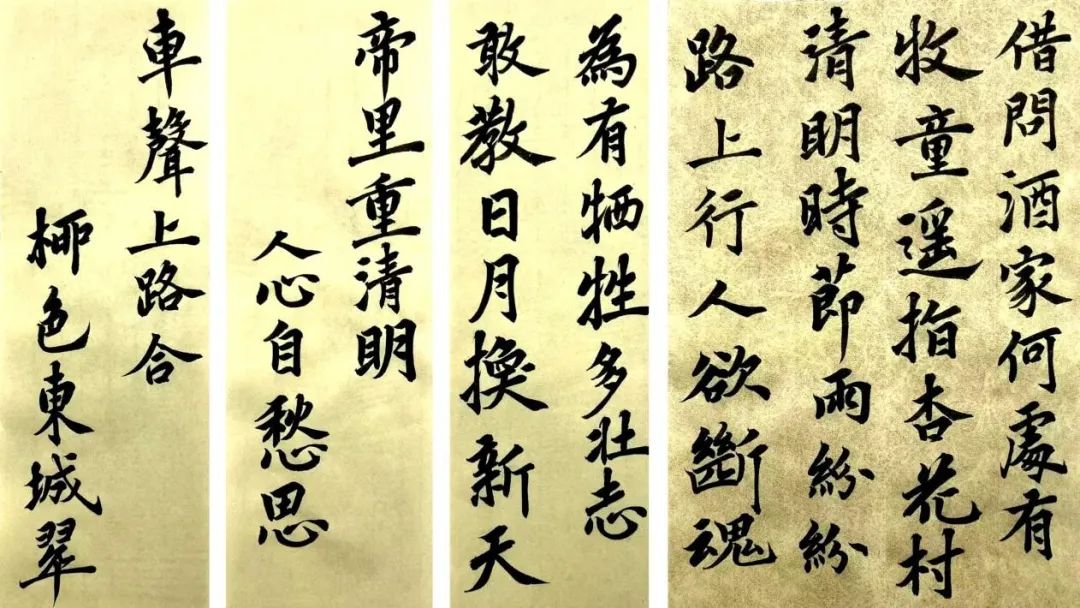 借問酒家何處有
牧童遥指杏花村
清明時節雨紛紛
路上行人欲斷魂
為有牺牲多壮志
敢教日月換新天
帝里重清明
人心自愁思
車聲上路合
柳色東城翠